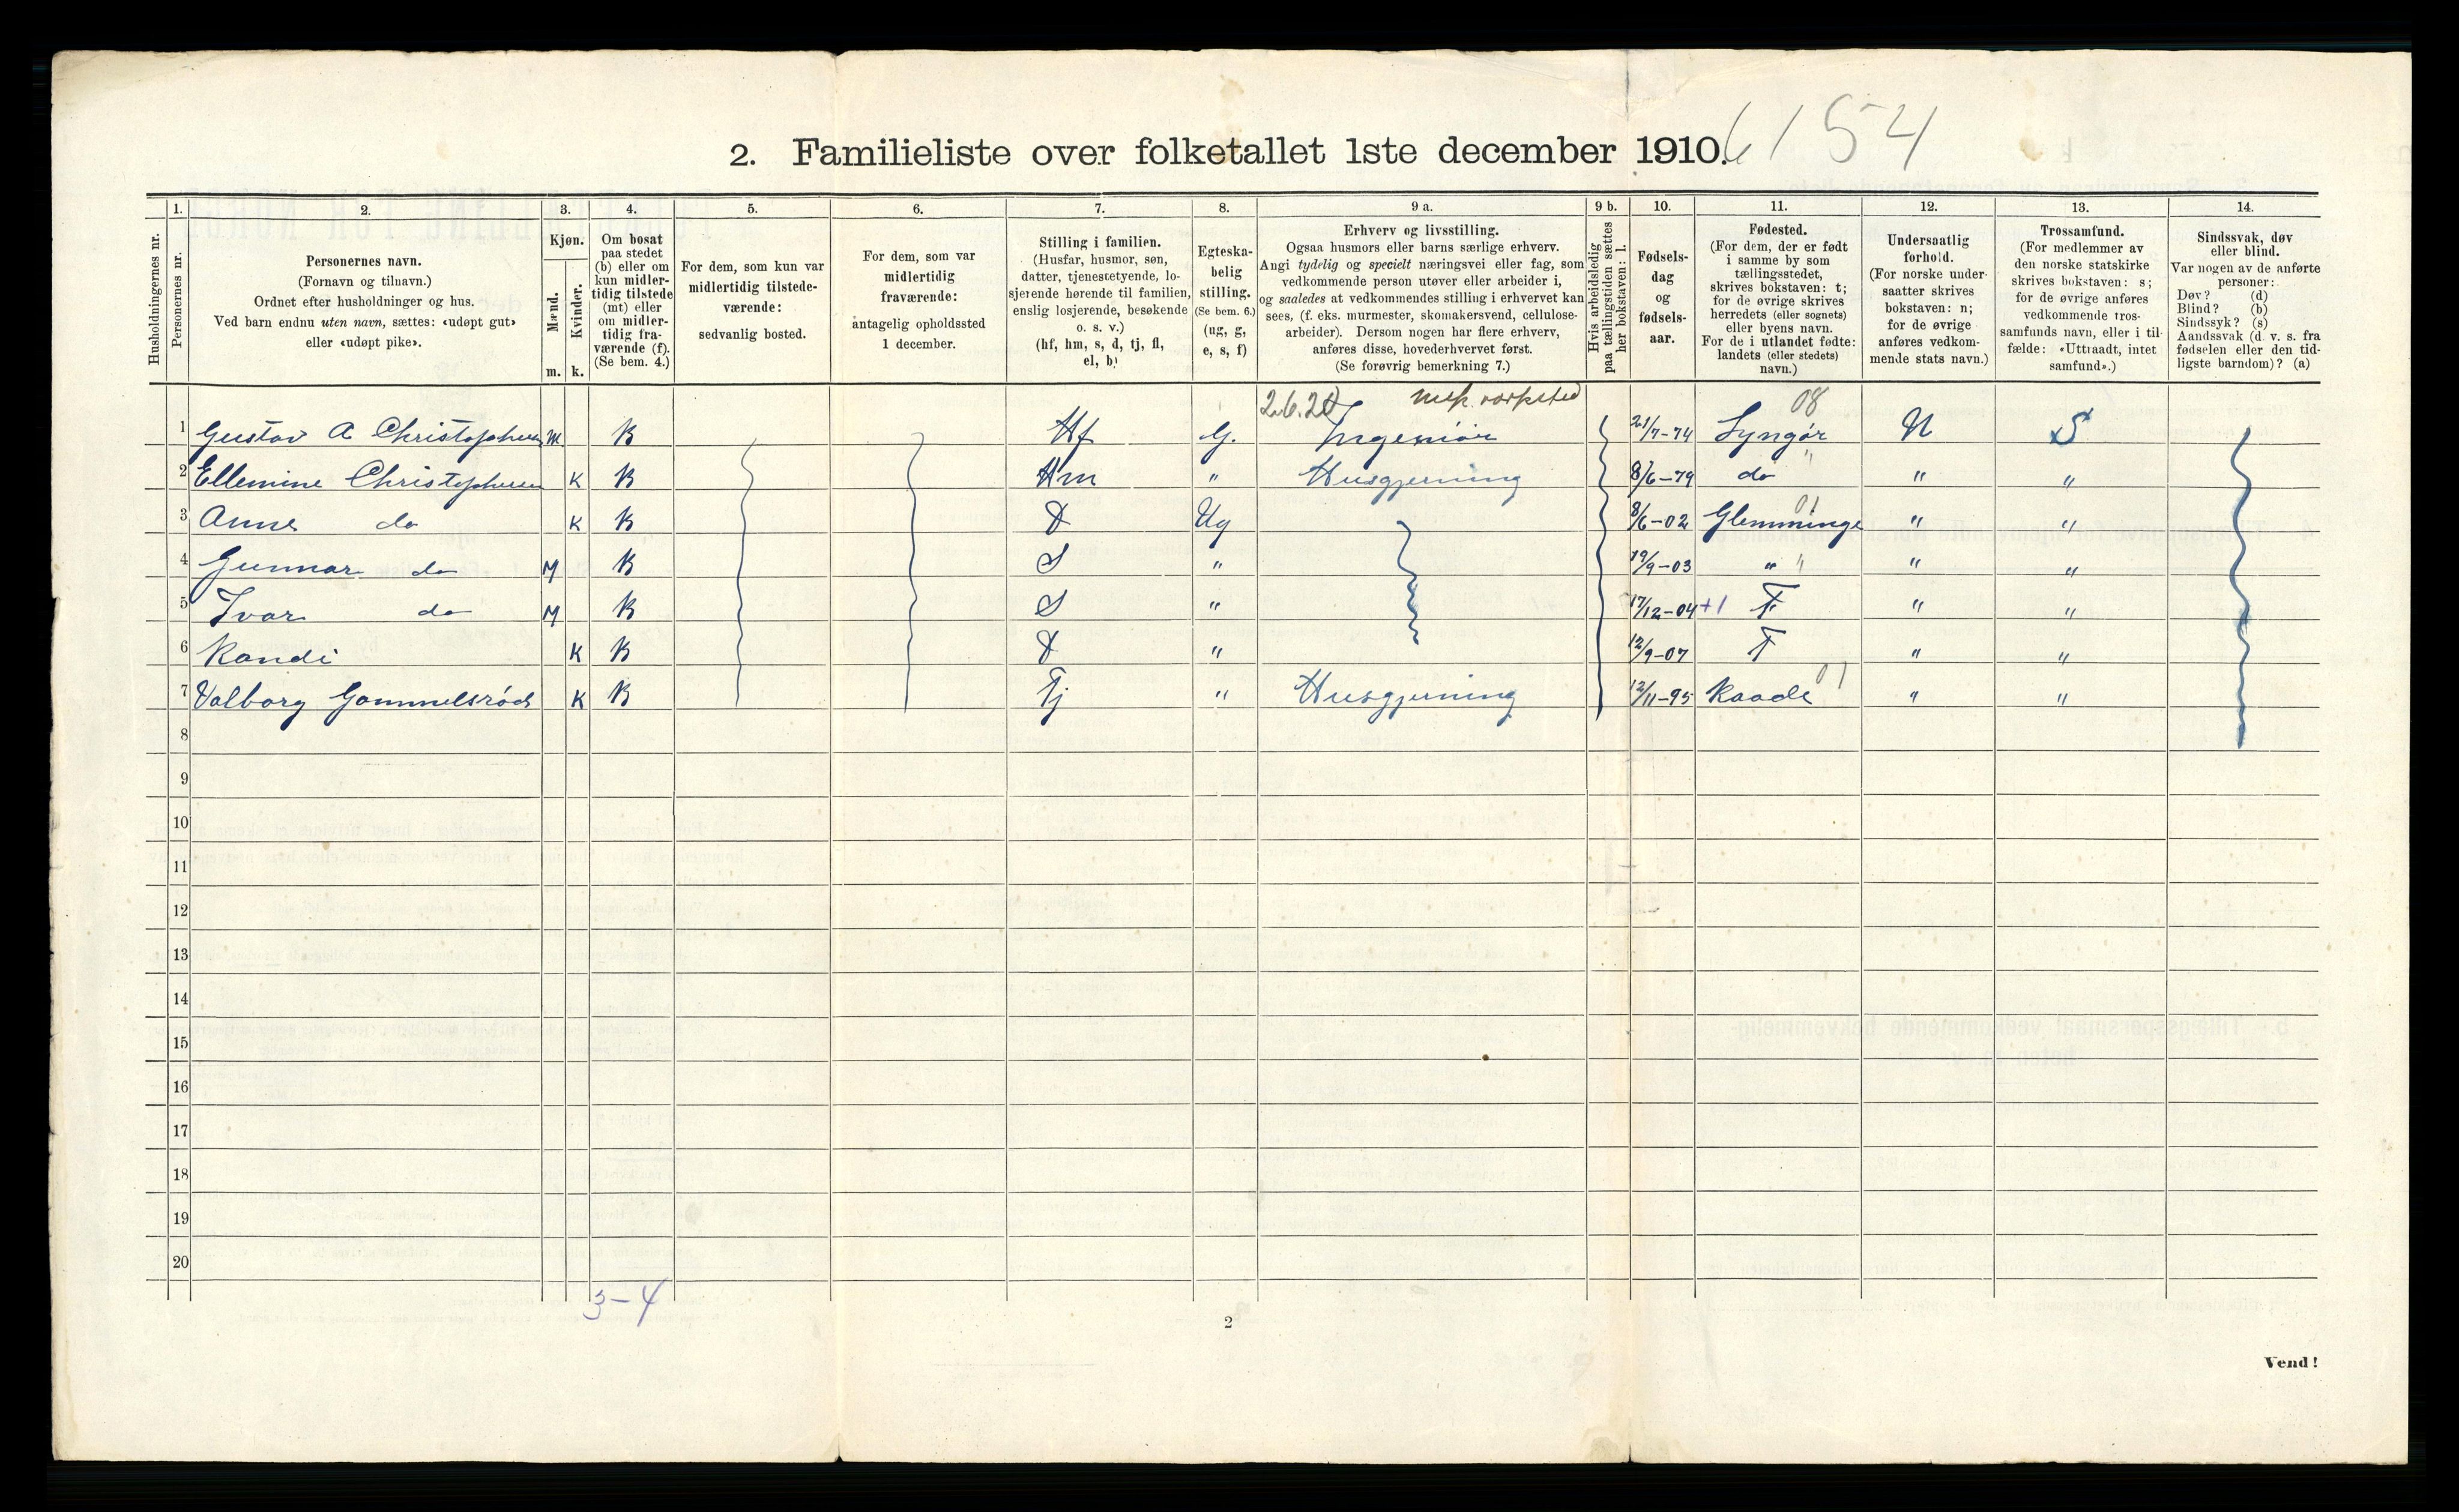 2. Familieliste over folketallet 1ste december 1910. 6154
Husholdningernes nr.
1. Personernes nr.
2. Personernes navn.
(Fornavn og tilnavn.)
Ordnet efter husholdninger og hus.
Ved barn endnu uten navn, sættes: «udøpt gut»
eller «udøpt pike».
3. Kjøn.
Mænd. m.
Kvinder. k.
4. Om bosat
paa stedet
(b) eller om
kun midler-
tidig tilstede
(mt) eller
om midler-
tidig fra-
værende (f).
(Se bem. 4.)
5. For dem, som kun var
midlertidig tilstede-
værende:
sedvanlig bosted.
6. For dem, som var
midlertidig
fraværende:
antagelig opholdssted
1 december.
7. Stilling i familien.
(Husfar, husmor, søn,
datter, tjenestetyende, lo-
sjerende hørende til familien,
enslig losjerende, besøkende
o. s. v.)
(hf, hm, s, d, tj, fl,
el, b)
8. Egteska-
belig
stilling.
(Se bem. 6.)
(ug, g,
e, s, f)
9 a. Erhverv og livsstilling.
Ogsaa husmors eller barns særlige erhverv.
Angi tydelig og specielt næringsvei eller fag, som
vedkommende person utøver eller arbeider i,
og saaledes at vedkommendes stilling i erhvervet kan
sees, (f. eks. murmester, skomakersvend, cellulose-
arbeider). Dersom nogen har flere erhverv,
anføres disse, hovederhvervet først.
(Se forøvrig bemerkning 7.)
9 b. Hvis arbeidsledig
paa tællingstiden sættes
her bokstaven: l.
10. Fødsels-
dag
og
fødsels-
aar.
11. Fødested.
(For dem, der er født
i samme by som
tællingsstedet,
skrives bokstaven: t;
for de øvrige skrives
herredets (eller sognets)
eller byens navn.
For de i utlandet fødte:
landets (eller stedets)
navn.)
12. Undersaatlig
forhold.
(For norske under-
saatter skrives
bokstaven: n;
for de øvrige
anføres vedkom-
mende stats navn.)
13. Trossamfund.
(For medlemmer av
den norske statskirke
skrives bokstaven: s;
for de øvrige anføres
vedkommende tros-
samfunds navn, eller i til-
fælde: «Uttraadt, intet
samfund».)
14. Sindssvak, døv
eller blind.
Var nogen av de anførte
personer:
Døv? (d)
Blind? (b)
Sindssyk? (s)
Aandssvak (d. v. s. fra
fødselen eller den tid-
ligste barndom)? (a)
2.6.20 mek. værksted 08
1 Gustav A Christophersen M B Hf G. Ingeniør 21/7-74 Lyngør N S
2 Ellemine Christophersen K B Hm " Husgjerning 8/6-79 do " " "
3 Anne do K B D Ug 8/6-02 Glemminge 01 " "
4 Gunnar do M B S " 19/9-03 " " " "
5 Ivar do M B S " 17/12-04 +1 T " "
6 Randi K B D " 12/9-07 T " "
7 Valborg Gammelsrød K B Tj " Husgjerning 12/11-95 Raade 01 " "
8
9
10
11
12
13
14
15
16
17
18
19
20
3-4
2
Vend!